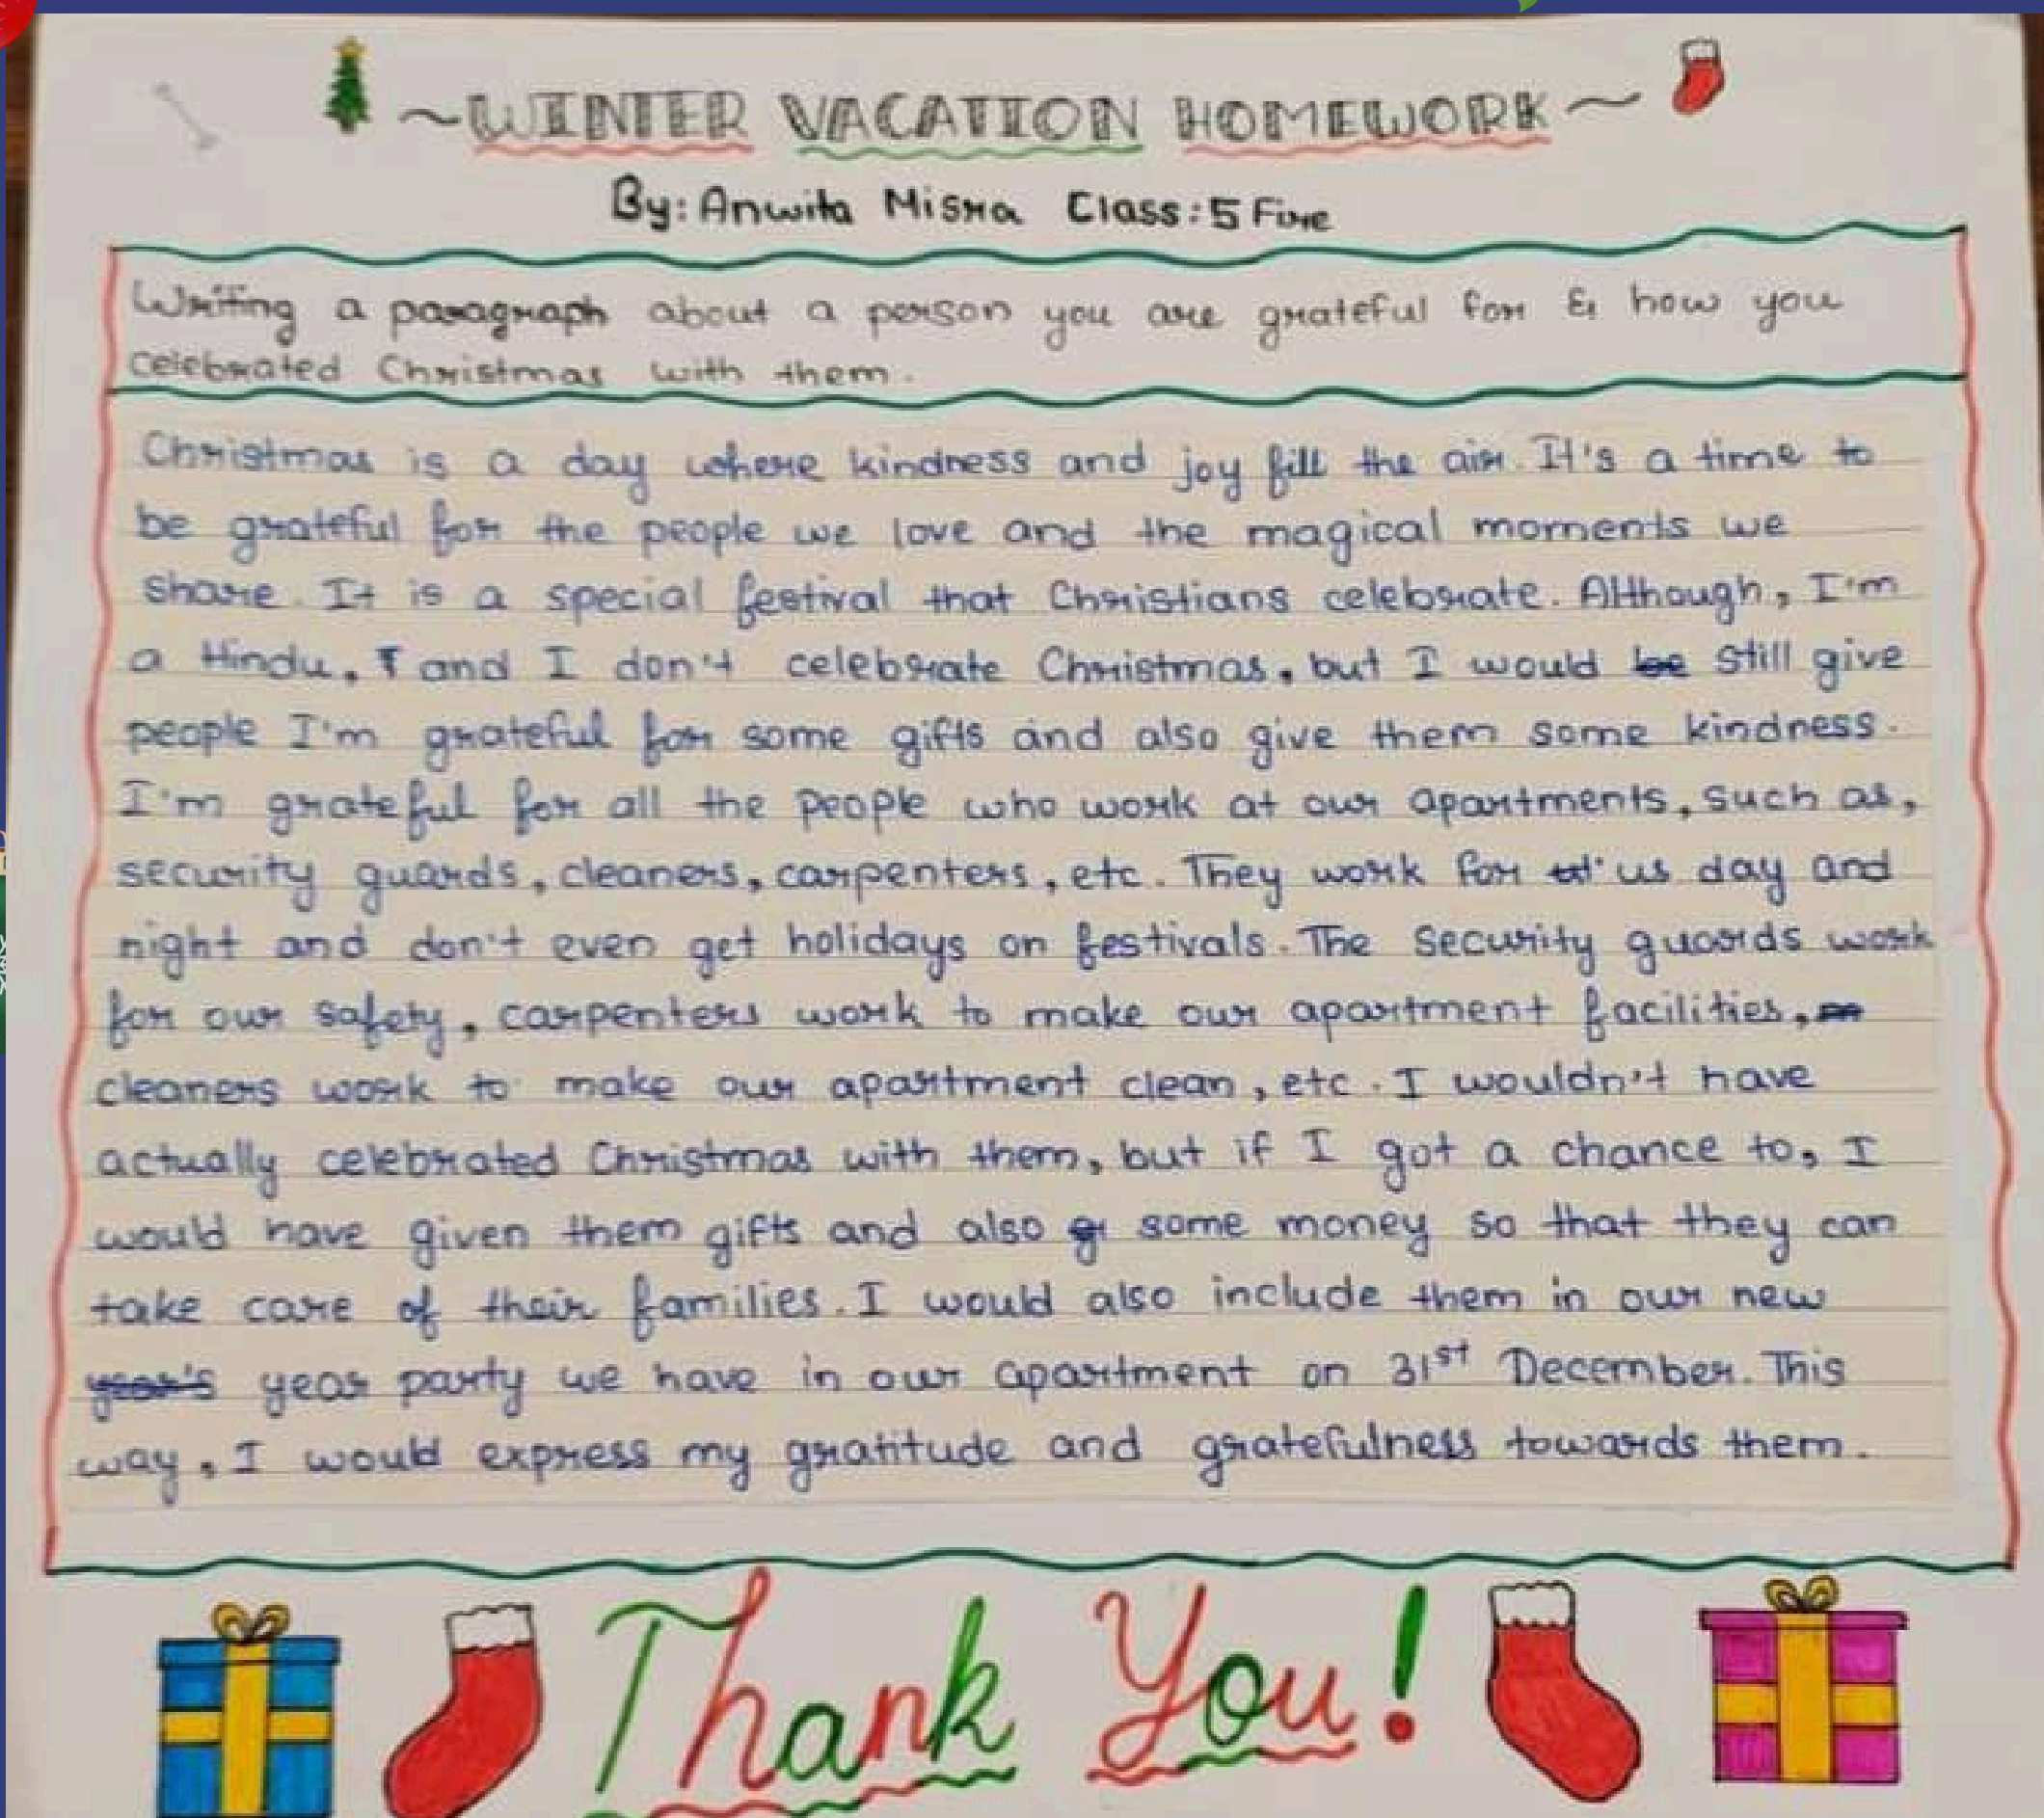 ~WINTER VACATION HOMEWORK~
By: Anwita Misra Class: 5 Fire
Writing a paragraph about a person you are grateful for & how you
celebrated Christmas with them.
Christmas is a day where kindness and joy fill the air. It's a time to
be grateful for the people we love and the magical moments we
share. It is a special festival that Christians celebrate. Although, I'm
a Hindu, and I don't celebrate Christmas, but I would be still give
people I'm grateful for some gifts and also give them some kindness.
I'm grateful for all the people who work at our apartments, such as,
security guards, cleaners, carpenters, etc. They work for us day and
night and don't even get holidays on festivals. The security guards work
for our safety, carpenters work to make our apartment facilities,
cleaners work to make our apartment clean, etc. I wouldn't have
actually celebrated Christmas with them, but if I got a chance to, I
would have given them gifts and also some money so that they can
take care of their families. I would also include them in our new
year's year party we have in our apartment on 31st December. This
way, I would express my gratitude and gratefulness towards them.
Thank You!